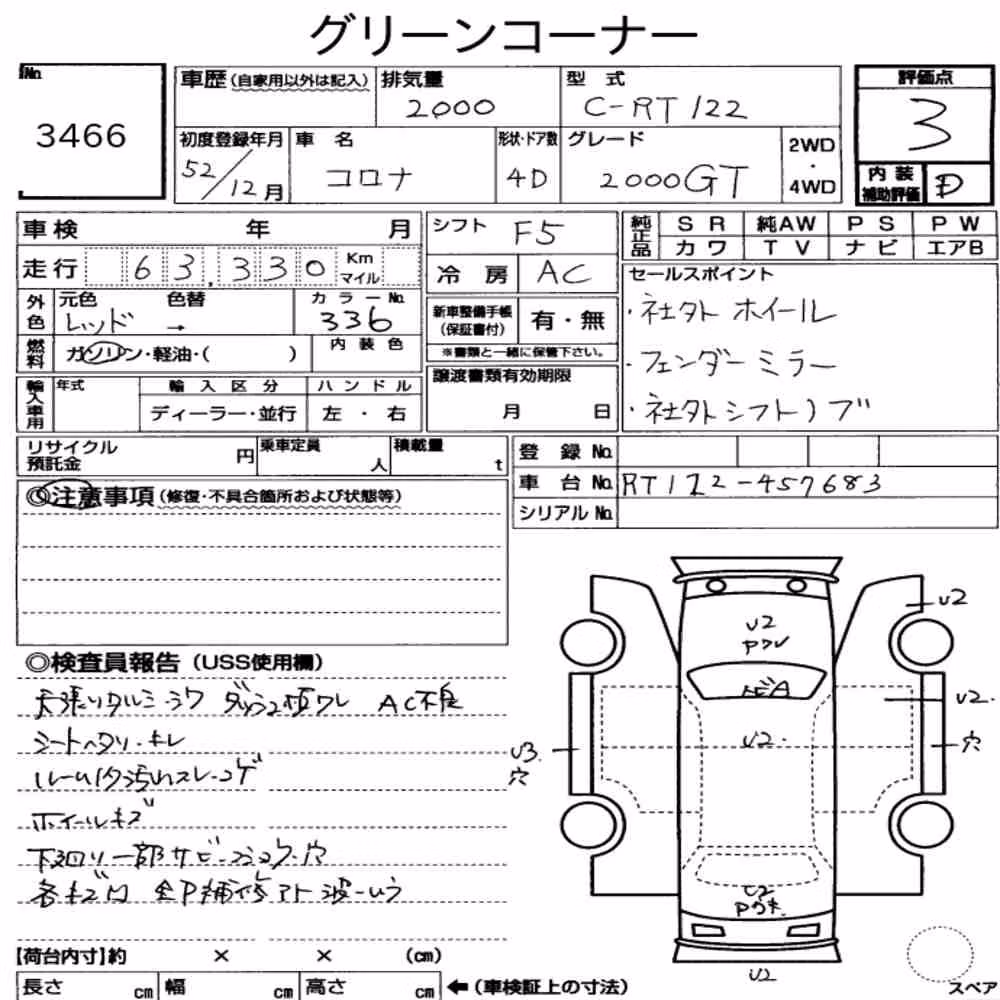 グリーンコーナー
No. 3466
車歴(自家用以外は記入) 排気量 2000 型式 C-RT122 評価点 3
初度登録年月 52/12月 車名 コロナ 形状・ドア数 4D グレード 2000GT 2WD・4WD 内装補助評価 D
車検 年 月 シフト F5 純正品 SR 純AW PS PW
走行 63,330 Km マイル 冷房 AC カワ TV ナビ エアB
外色 元色 レッド 色替 → カラーNo. 336 新車整備手帳(保証書付) 有・無 セールスポイント
・社外ホイール
燃料 ガソリン・軽油・( ) 内装色 ※書類と一緒に保管下さい。
・フェンダーミラー
輸入車用 年式 輸入区分 ハンドル 譲渡書類有効期限
ディーラー・並行 左・右 月 日
・社外シフトノブ
リサイクル預託金 円 乗車定員 人 積載量 t 登録No.
車台No. RT122-457683
シリアルNo.
◎注意事項(修復・不具合箇所および状態等)
◎検査員報告(USS使用欄)
AC不良
シートヘタリ・キレ
ホイールキズ
下廻り一部サビ・コシコク・穴
U2
U2
トビA
U2.
U2.
U3.
穴
穴
U2
【荷台内寸】約 × × (cm)
長さ cm 幅 cm 高さ cm ←(車検証上の寸法)
スペア